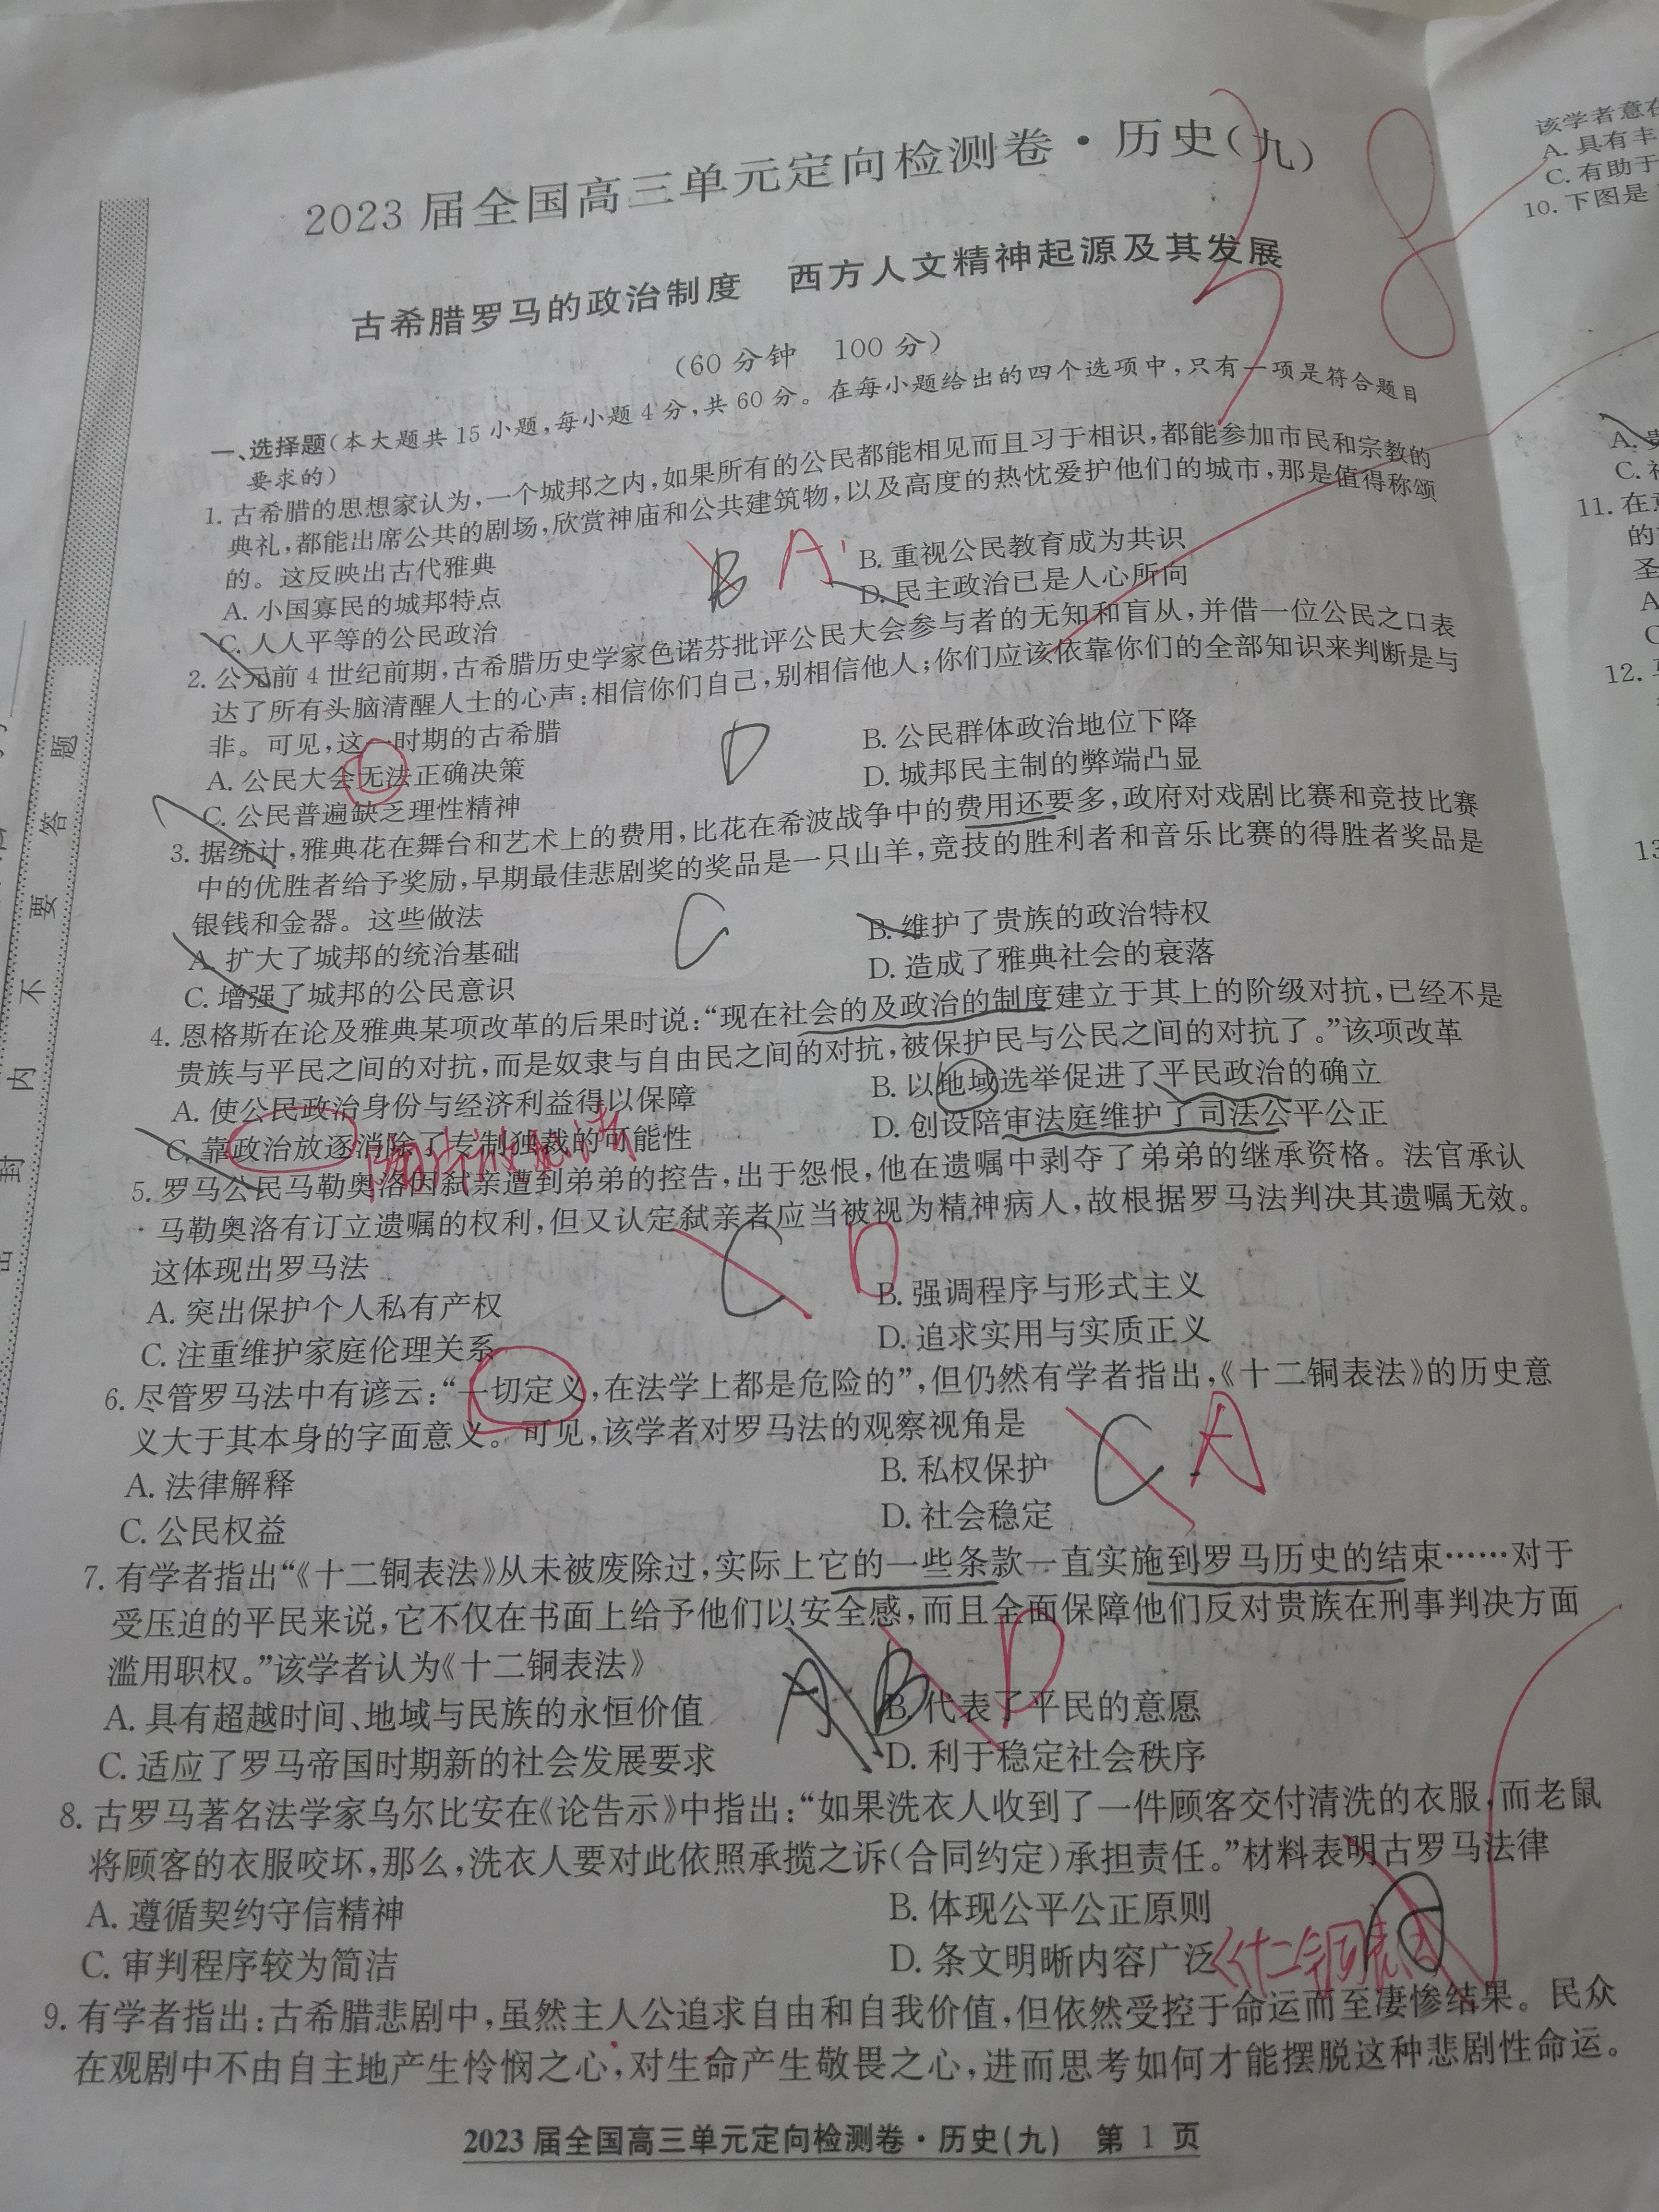 2023届全国高三单元定向检测卷·历史(九)
古希腊罗马的政治制度 西方人文精神起源及其发展
(60分钟 100分)
一、选择题(本大题共15小题,每小题4分,共60分。在每小题给出的四个选项中,只有一项是符合题目
要求的)
1. 古希腊的思想家认为,一个城邦之内,如果所有的公民都能相见而且习于相识,都能参加市民和宗教的
典礼,都能出席公共的剧场,欣赏神庙和公共建筑物,以及高度的热忱爱护他们的城市,那是值得称颂
的。这反映出古代雅典
B A
A. 小国寡民的城邦特点 B. 重视公民教育成为共识
C. 人人平等的公民政治 D. 民主政治已是人心所向
2. 公元前4世纪前期,古希腊历史学家色诺芬批评公民大会参与者的无知和盲从,并借一位公民之口表
达了所有头脑清醒人士的心声:相信你们自己,别相信他人;你们应该依靠你们的全部知识来判断是与
非。可见,这一时期的古希腊
D
A. 公民大会无法正确决策 B. 公民群体政治地位下降
C. 公民普遍缺乏理性精神 D. 城邦民主制的弊端凸显
3. 据统计,雅典花在舞台和艺术上的费用,比花在希波战争中的费用还要多,政府对戏剧比赛和竞技比赛
中的优胜者给予奖励,早期最佳悲剧奖的奖品是一只山羊,竞技的胜利者和音乐比赛的得胜者奖品是
银钱和金器。这些做法
C
A. 扩大了城邦的统治基础 B. 维护了贵族的政治特权
C. 增强了城邦的公民意识 D. 造成了雅典社会的衰落
4. 恩格斯在论及雅典某项改革的后果时说:“现在社会的及政治的制度建立于其上的阶级对抗,已经不是
贵族与平民之间的对抗,而是奴隶与自由民之间的对抗,被保护民与公民之间的对抗了。”该项改革
A. 使公民政治身份与经济利益得以保障 B. 以地域选举促进了平民政治的确立
C. 靠政治放逐消除了专制独裁的可能性 D. 创设陪审法庭维护了司法公平公正
5. 罗马公民马勒奥洛因弑亲遭到弟弟的控告,出于怨恨,他在遗嘱中剥夺了弟弟的继承资格。法官承认
马勒奥洛有订立遗嘱的权利,但又认定弑亲者应当被视为精神病人,故根据罗马法判决其遗嘱无效。
这体现出罗马法
C D
A. 突出保护个人私有产权 B. 强调程序与形式主义
C. 注重维护家庭伦理关系 D. 追求实用与实质正义
6. 尽管罗马法中有谚云:“一切定义,在法学上都是危险的”,但仍然有学者指出,《十二铜表法》的历史意
义大于其本身的字面意义。可见,该学者对罗马法的观察视角是
C A
A. 法律解释 B. 私权保护
C. 公民权益 D. 社会稳定
7. 有学者指出“《十二铜表法》从未被废除过,实际上它的一些条款一直实施到罗马历史的结束……对于
受压迫的平民来说,它不仅在书面上给予他们以安全感,而且全面保障他们反对贵族在刑事判决方面
滥用职权。”该学者认为《十二铜表法》
A B D
A. 具有超越时间、地域与民族的永恒价值 B. 代表了平民的意愿
C. 适应了罗马帝国时期新的社会发展要求 D. 利于稳定社会秩序
8. 古罗马著名法学家乌尔比安在《论告示》中指出:“如果洗衣人收到了一件顾客交付清洗的衣服,而老鼠
将顾客的衣服咬坏,那么,洗衣人要对此依照承揽之诉(合同约定)承担责任。”材料表明古罗马法律
A. 遵循契约守信精神 B. 体现公平公正原则
C. 审判程序较为简洁 D. 条文明晰内容广泛
《十二铜表法
9. 有学者指出:古希腊悲剧中,虽然主人公追求自由和自我价值,但依然受控于命运而至凄惨结果。民众
在观剧中不由自主地产生怜悯之心,对生命产生敬畏之心,进而思考如何才能摆脱这种悲剧性命运。
2023届全国高三单元定向检测卷·历史(九) 第1页
题
答
要
不
内
封
该学者意在
A. 具有丰
C. 有助于
10. 下图是
A.
C.
11. 在
的
圣
A
C
12.
13